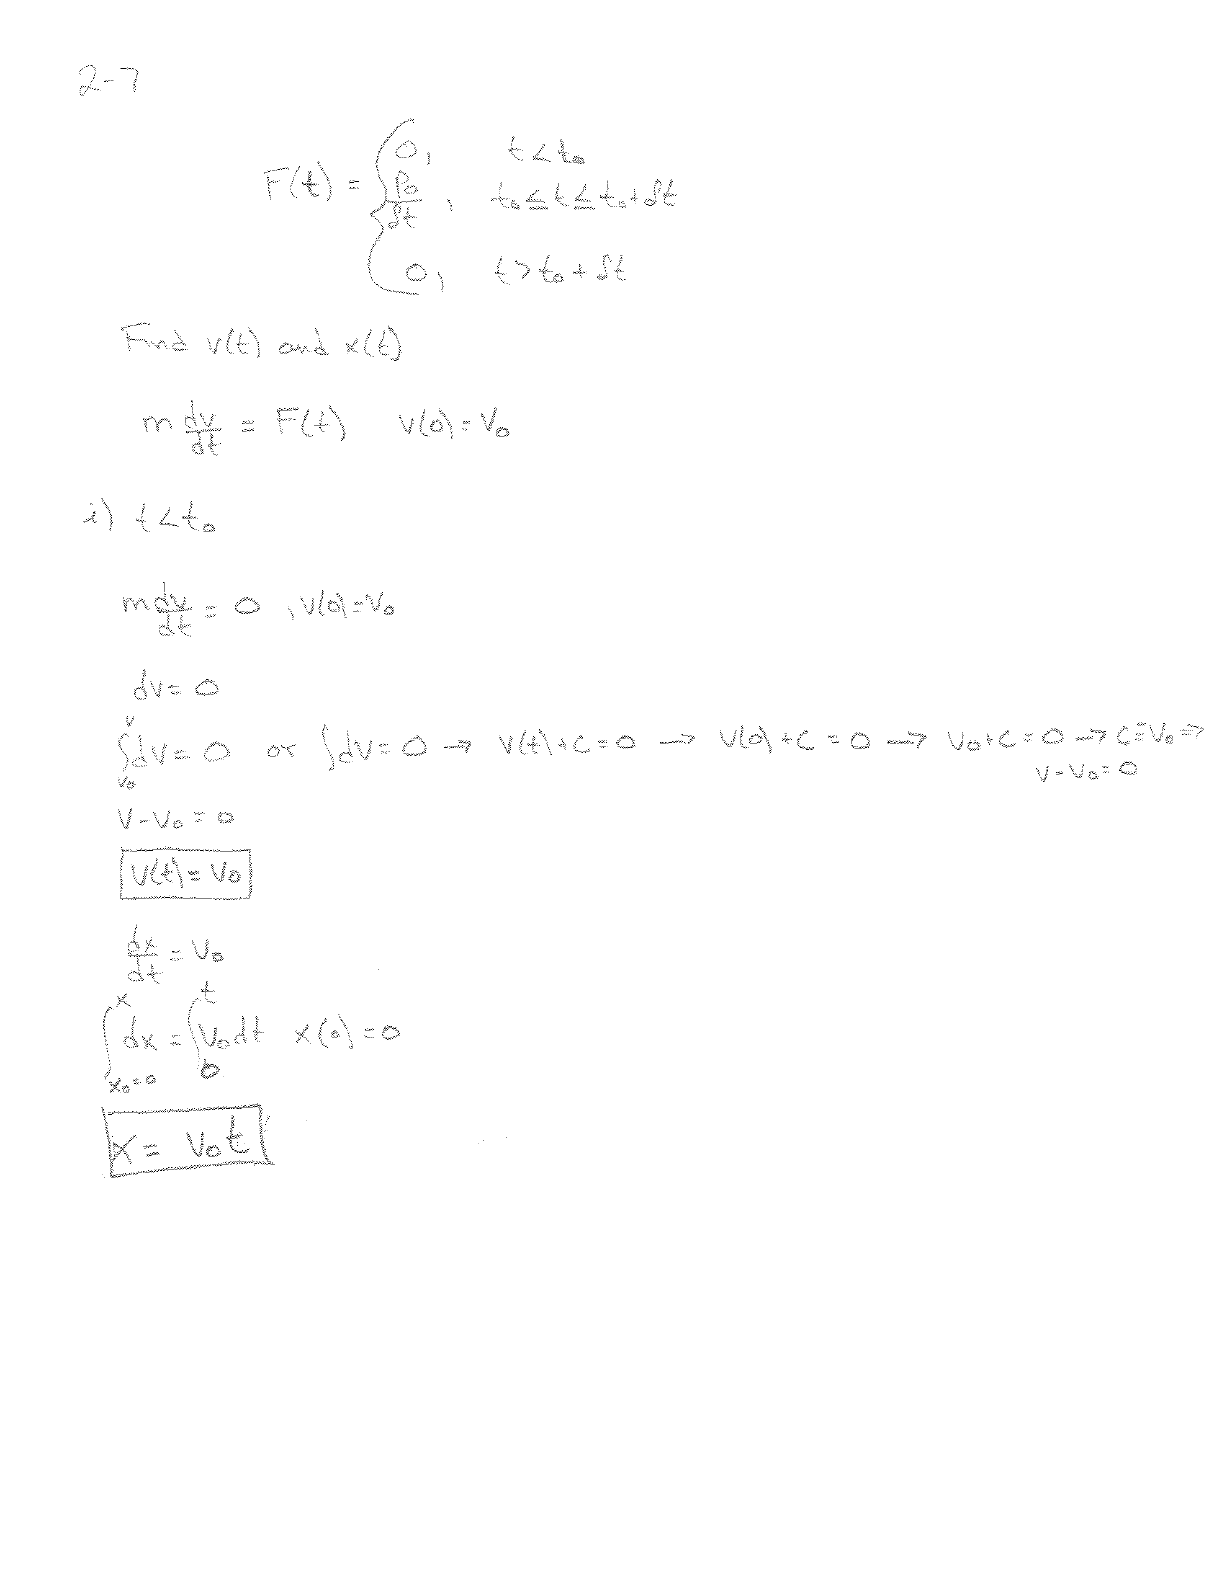 2-7
F(t) = { 0, t < t₀
p₀/δt, t₀ ≤ t ≤ t₀+δt
0, t > t₀ + δt
Find v(t) and x(t)
m dv/dt = F(t) v(0) = v₀
i) t < t₀
m dv/dt = 0 , v(0) = v₀
dv = 0
∫_{v₀}^{v} dv = 0 or ∫dv = 0 → v(t)+c = 0 → v(0)+c = 0 → v₀+c = 0 → c = v₀ ⇒
v - v₀ = 0
v - v₀ = 0
v(t) = v₀
dx/dt = v₀
∫_{x₀=0}^{x} dx = ∫_{0}^{t} v₀dt x(0) = 0
x = v₀t